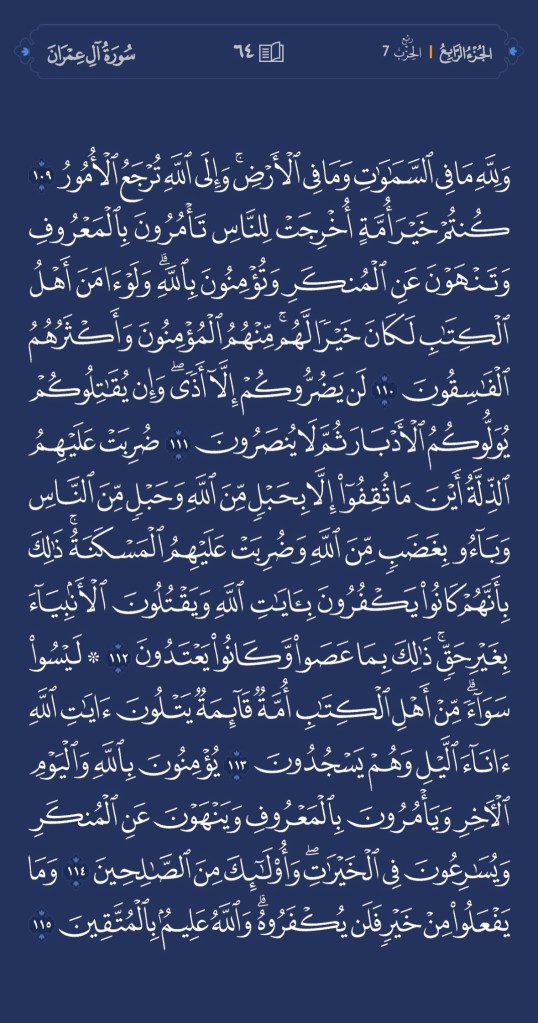 الجُزْءُ الرَّابِعُ | رُبْع الحِزْب 7
٦٤
سُورَةُ آلِ عِمْرَانَ
وَلِلَّهِ مَا فِي ٱلسَّمَٰوَٰتِ وَمَا فِي ٱلۡأَرۡضِۚ وَإِلَى ٱللَّهِ تُرۡجَعُ ٱلۡأُمُورُ ١٠٩
كُنتُمۡ خَيۡرَ أُمَّةٍ أُخۡرِجَتۡ لِلنَّاسِ تَأۡمُرُونَ بِٱلۡمَعۡرُوفِ
وَتَنۡهَوۡنَ عَنِ ٱلۡمُنكَرِ وَتُؤۡمِنُونَ بِٱللَّهِۗ وَلَوۡ ءَامَنَ أَهۡلُ
ٱلۡكِتَٰبِ لَكَانَ خَيۡرٗا لَّهُمۚ مِّنۡهُمُ ٱلۡمُؤۡمِنُونَ وَأَكۡثَرُهُمُ
ٱلۡفَٰسِقُونَ ١١٠ لَن يَضُرُّوكُمۡ إِلَّآ أَذٗىۖ وَإِن يُقَٰتِلُوكُمۡ
يُوَلُّوكُمُ ٱلۡأَدۡبَارَ ثُمَّ لَا يُنصَرُونَ ١١١ ضُرِبَتۡ عَلَيۡهِمُ
ٱلذِّلَّةُ أَيۡنَ مَا ثُقِفُوٓاْ إِلَّا بِحَبۡلٖ مِّنَ ٱللَّهِ وَحَبۡلٖ مِّنَ ٱلنَّاسِ
وَبَآءُو بِغَضَبٖ مِّنَ ٱللَّهِ وَضُرِبَتۡ عَلَيۡهِمُ ٱلۡمَسۡكَنَةُۚ ذَٰلِكَ
بِأَنَّهُمۡ كَانُواْ يَكۡفُرُونَ بِـَٔايَٰتِ ٱللَّهِ وَيَقۡتُلُونَ ٱلۡأَنۢبِيَآءَ
بِغَيۡرِ حَقّٖۚ ذَٰلِكَ بِمَا عَصَواْ وَّكَانُواْ يَعۡتَدُونَ ١١٢ ۞ لَيۡسُواْ
سَوَآءٗۗ مِّنۡ أَهۡلِ ٱلۡكِتَٰبِ أُمَّةٞ قَآئِمَةٞ يَتۡلُونَ ءَايَٰتِ ٱللَّهِ
ءَانَآءَ ٱلَّيۡلِ وَهُمۡ يَسۡجُدُونَ ١١٣ يُؤۡمِنُونَ بِٱللَّهِ وَٱلۡيَوۡمِ
ٱلۡأٓخِرِ وَيَأۡمُرُونَ بِٱلۡمَعۡرُوفِ وَيَنۡهَوۡنَ عَنِ ٱلۡمُنكَرِ
وَيُسَٰرِعُونَ فِي ٱلۡخَيۡرَٰتِۖ وَأُوْلَٰٓئِكَ مِنَ ٱلصَّٰلِحِينَ ١١٤ وَمَا
يَفۡعَلُواْ مِنۡ خَيۡرٖ فَلَن يُكۡفَرُوهُۗ وَٱللَّهُ عَلِيمُۢ بِٱلۡمُتَّقِينَ ١١٥